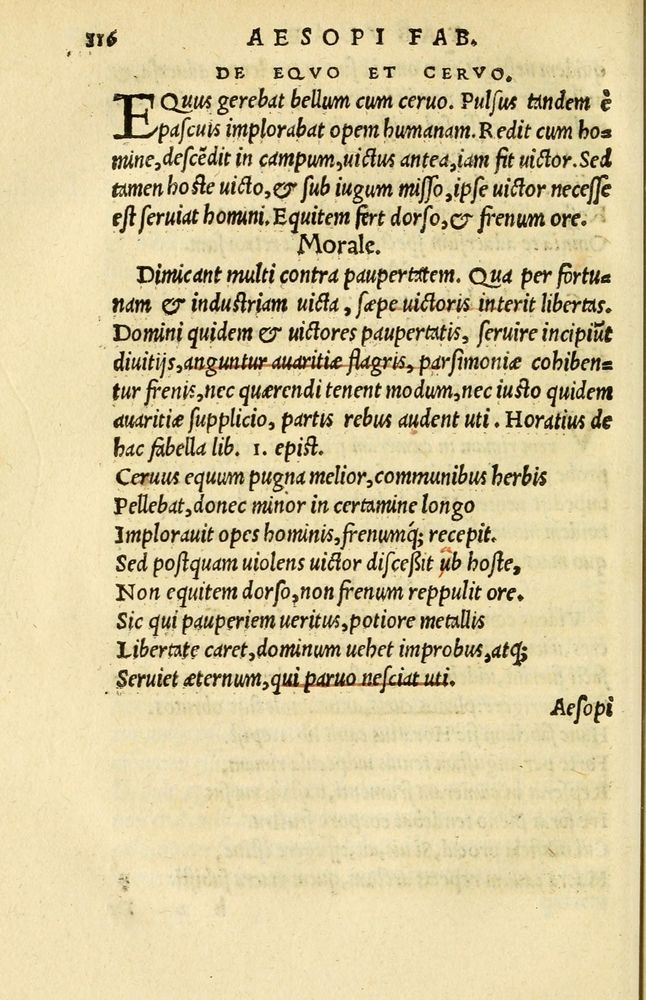 316 AESOPI FAB.
DE EQVO ET CERVO.
EQuus gerebat bellum cum ceruo. Pulſus tandem è
paſcuis implorabat opem humanam. Redit cum ho⸗
mine, deſcēdit in campum, uictus antea, iam fit uictor. Sed
tamen hoſte uicto, & ſub iugum miſſo, ipſe uictor neceſſe
eſt ſeruiat homini. Equitem fert dorſo, & frenum ore.
Morale.
Dimicant multi contra paupertatem. Qua per fortu⸗
nam & induſtriam uicta, ſæpe uictoris interit libertas.
Domini quidem & uictores paupertatis, ſeruire incipiūt
diuitijs, anguntur auaritiæ flagris, parſimoniæ cohiben⸗
tur frenis, nec quærendi tenent modum, nec iuſto quidem
auaritiæ ſupplicio, partis rebus audent uti. Horatius de
hac fabella lib. 1. epiſt.
Ceruus equum pugna melior, communibus herbis
Pellebat, donec minor in certamine longo
Implorauit opes hominis, frenumq́; recepit.
Sed poſtquam uiolens uictor diſceßit ub hoſte,
Non equitem dorſo, non frenum reppulit ore.
Sic qui pauperiem ueritus, potiore metallis
Libertate caret, dominum uehet improbus, atq;
Seruiet æternum, qui paruo neſciat uti.
Aeſopi